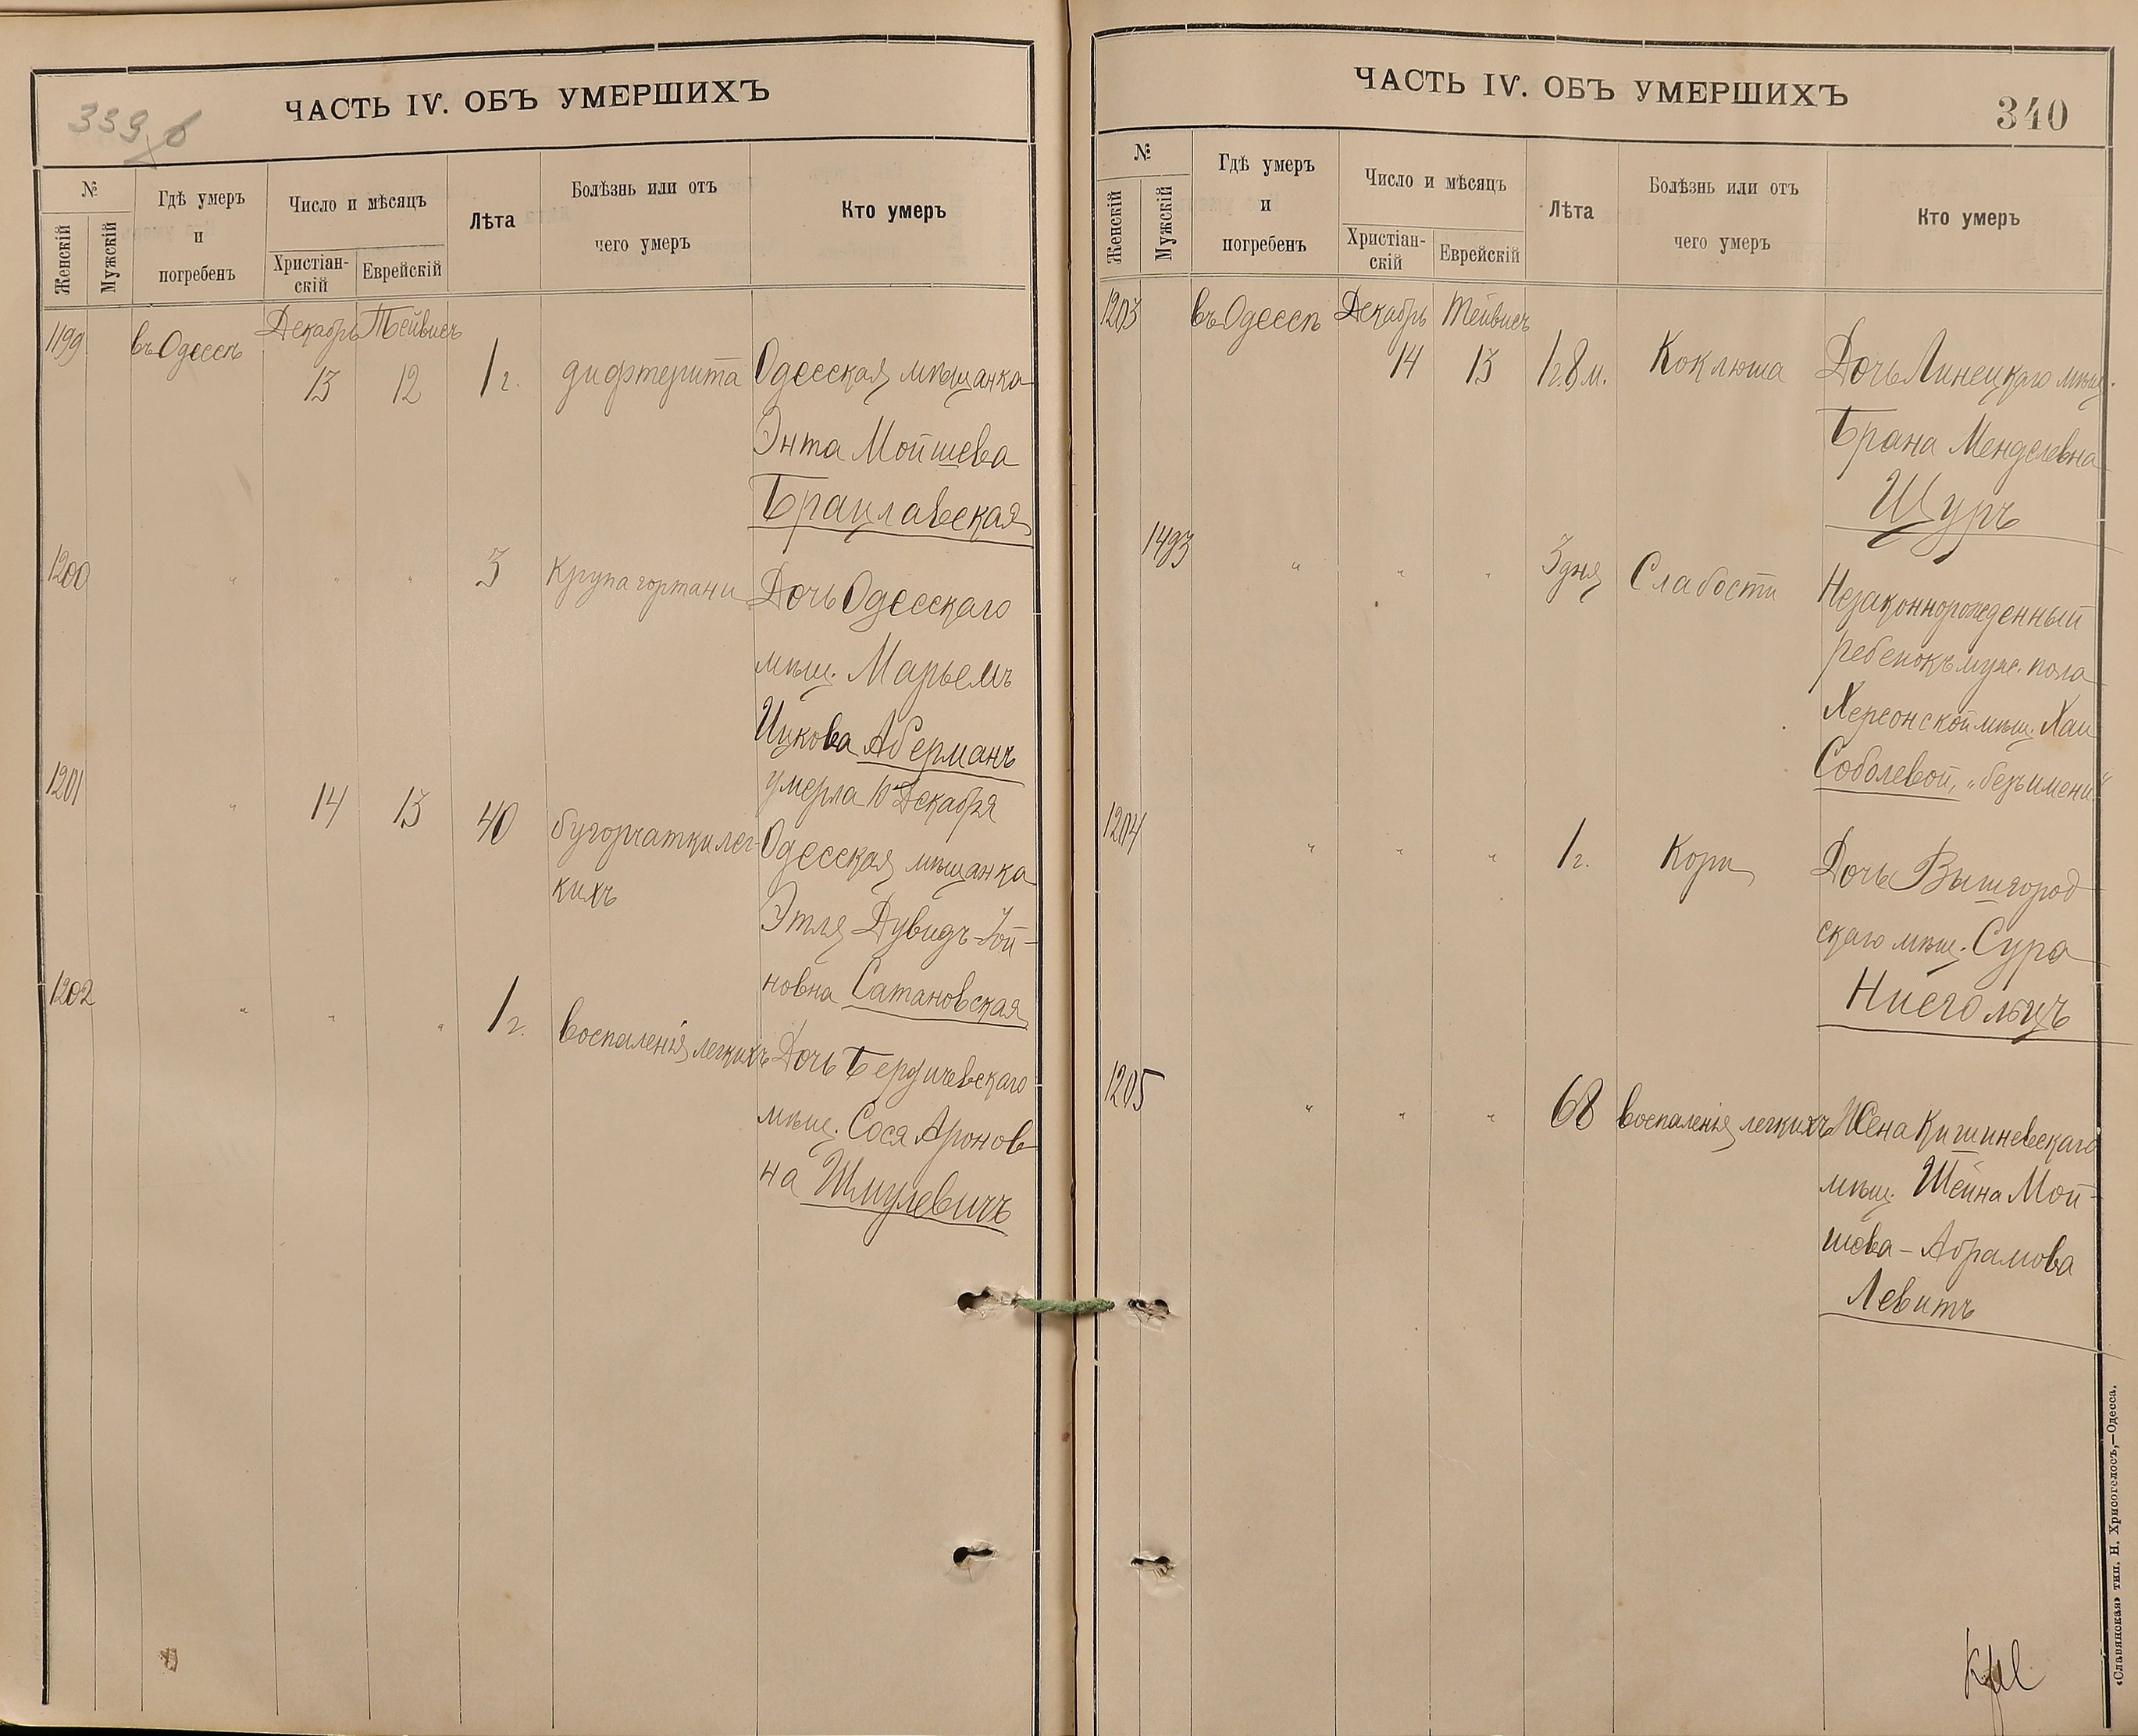 339 б
ЧАСТЬ IV. ОБЪ УМЕРШИХЪ
№
Женскій
Мужскій
Гдѣ умеръ
и
погребенъ
Число и мѣсяцъ
Христіан-
скій
Еврейскій
Лѣта
Болѣзнь или отъ
чего умеръ
Кто умеръ
1199 въ Одессѣ Декабрь Тейвисъ
13 12 1 г. дифтерита Одесская мѣщанка
Энта Мойшева
Брацлавская
1200 " " " 3 Крупа гортани Дочь Одесскаго
мѣщ. Марьемъ
Ицкова Аберманъ
умерла 10 Декабря
1201 " 14 13 40 бугорчатки лег- Одесская мѣщанка
кихъ
Этля Дувидъ-Іой-
новна Сатановская
1202 " " " 1 г. воспаленія легкихъ Дочь Бердичевскаго
мѣщ. Сося Аронов
на Шмулевичъ
ЧАСТЬ IV. ОБЪ УМЕРШИХЪ
340
№
Женскій
Мужскій
Гдѣ умеръ
и
погребенъ
Число и мѣсяцъ
Христіан-
скій
Еврейскій
Лѣта
Болѣзнь или отъ
чего умеръ
Кто умеръ
1203 въ Одессѣ Декабрь Тейвисъ
14 13 1 г. 8 м. Коклюша Дочь Линецкаго мѣщ.
Брана Менделевна
Щуръ
1493 " " " 3 дня Слабости Незаконнорожденный
ребенокъ муж. пола
Херсонской мѣщ. Хаи
Соболевой, "безъ имени"
1204 " " " 1 г. Кори Дочь Вышгород
скаго мѣщ. Сура
Нисгольцъ
1205 " " " 68 воспаленія легкихъ Жена Кишиневскаго
мѣщ. Шейна Мой-
шева-Абрамова
Левитъ
«Славянская» тип. Н. Хрисогелосъ,—Одесса.